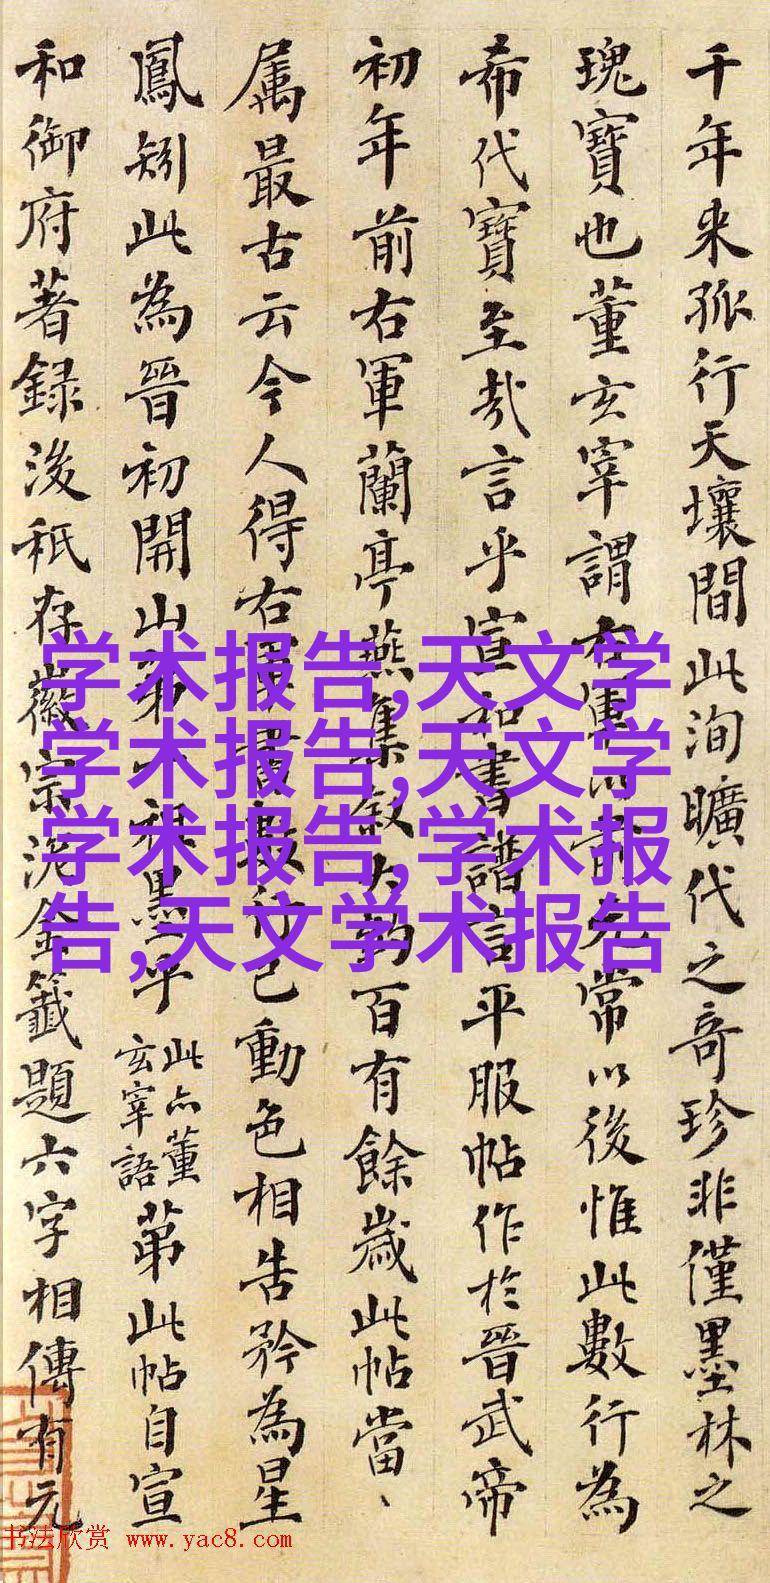 千年来孤行天壤間此洵曠代之奇珍非僅墨林之
瑰寶也董玄宰謂右軍以前元常以後惟此數行為
希代寶至哉言乎宣和書譜言平服帖作於晉武帝
初年前右軍蘭亭燕集敘大約百有餘歲此帖當、
属最古云今人得右軍書數行已動色相告矜為星
鳳矧此為晉初開山第一祖墨乎此亦董玄宰語苐此帖自宣
和御府著録後秖存徽宗泥金籤題六字相傳有元
学术报告,天文学
学术报告,天文学
学术报告,学术报
告,天文学术报告
书法欣赏 www.yac8.com